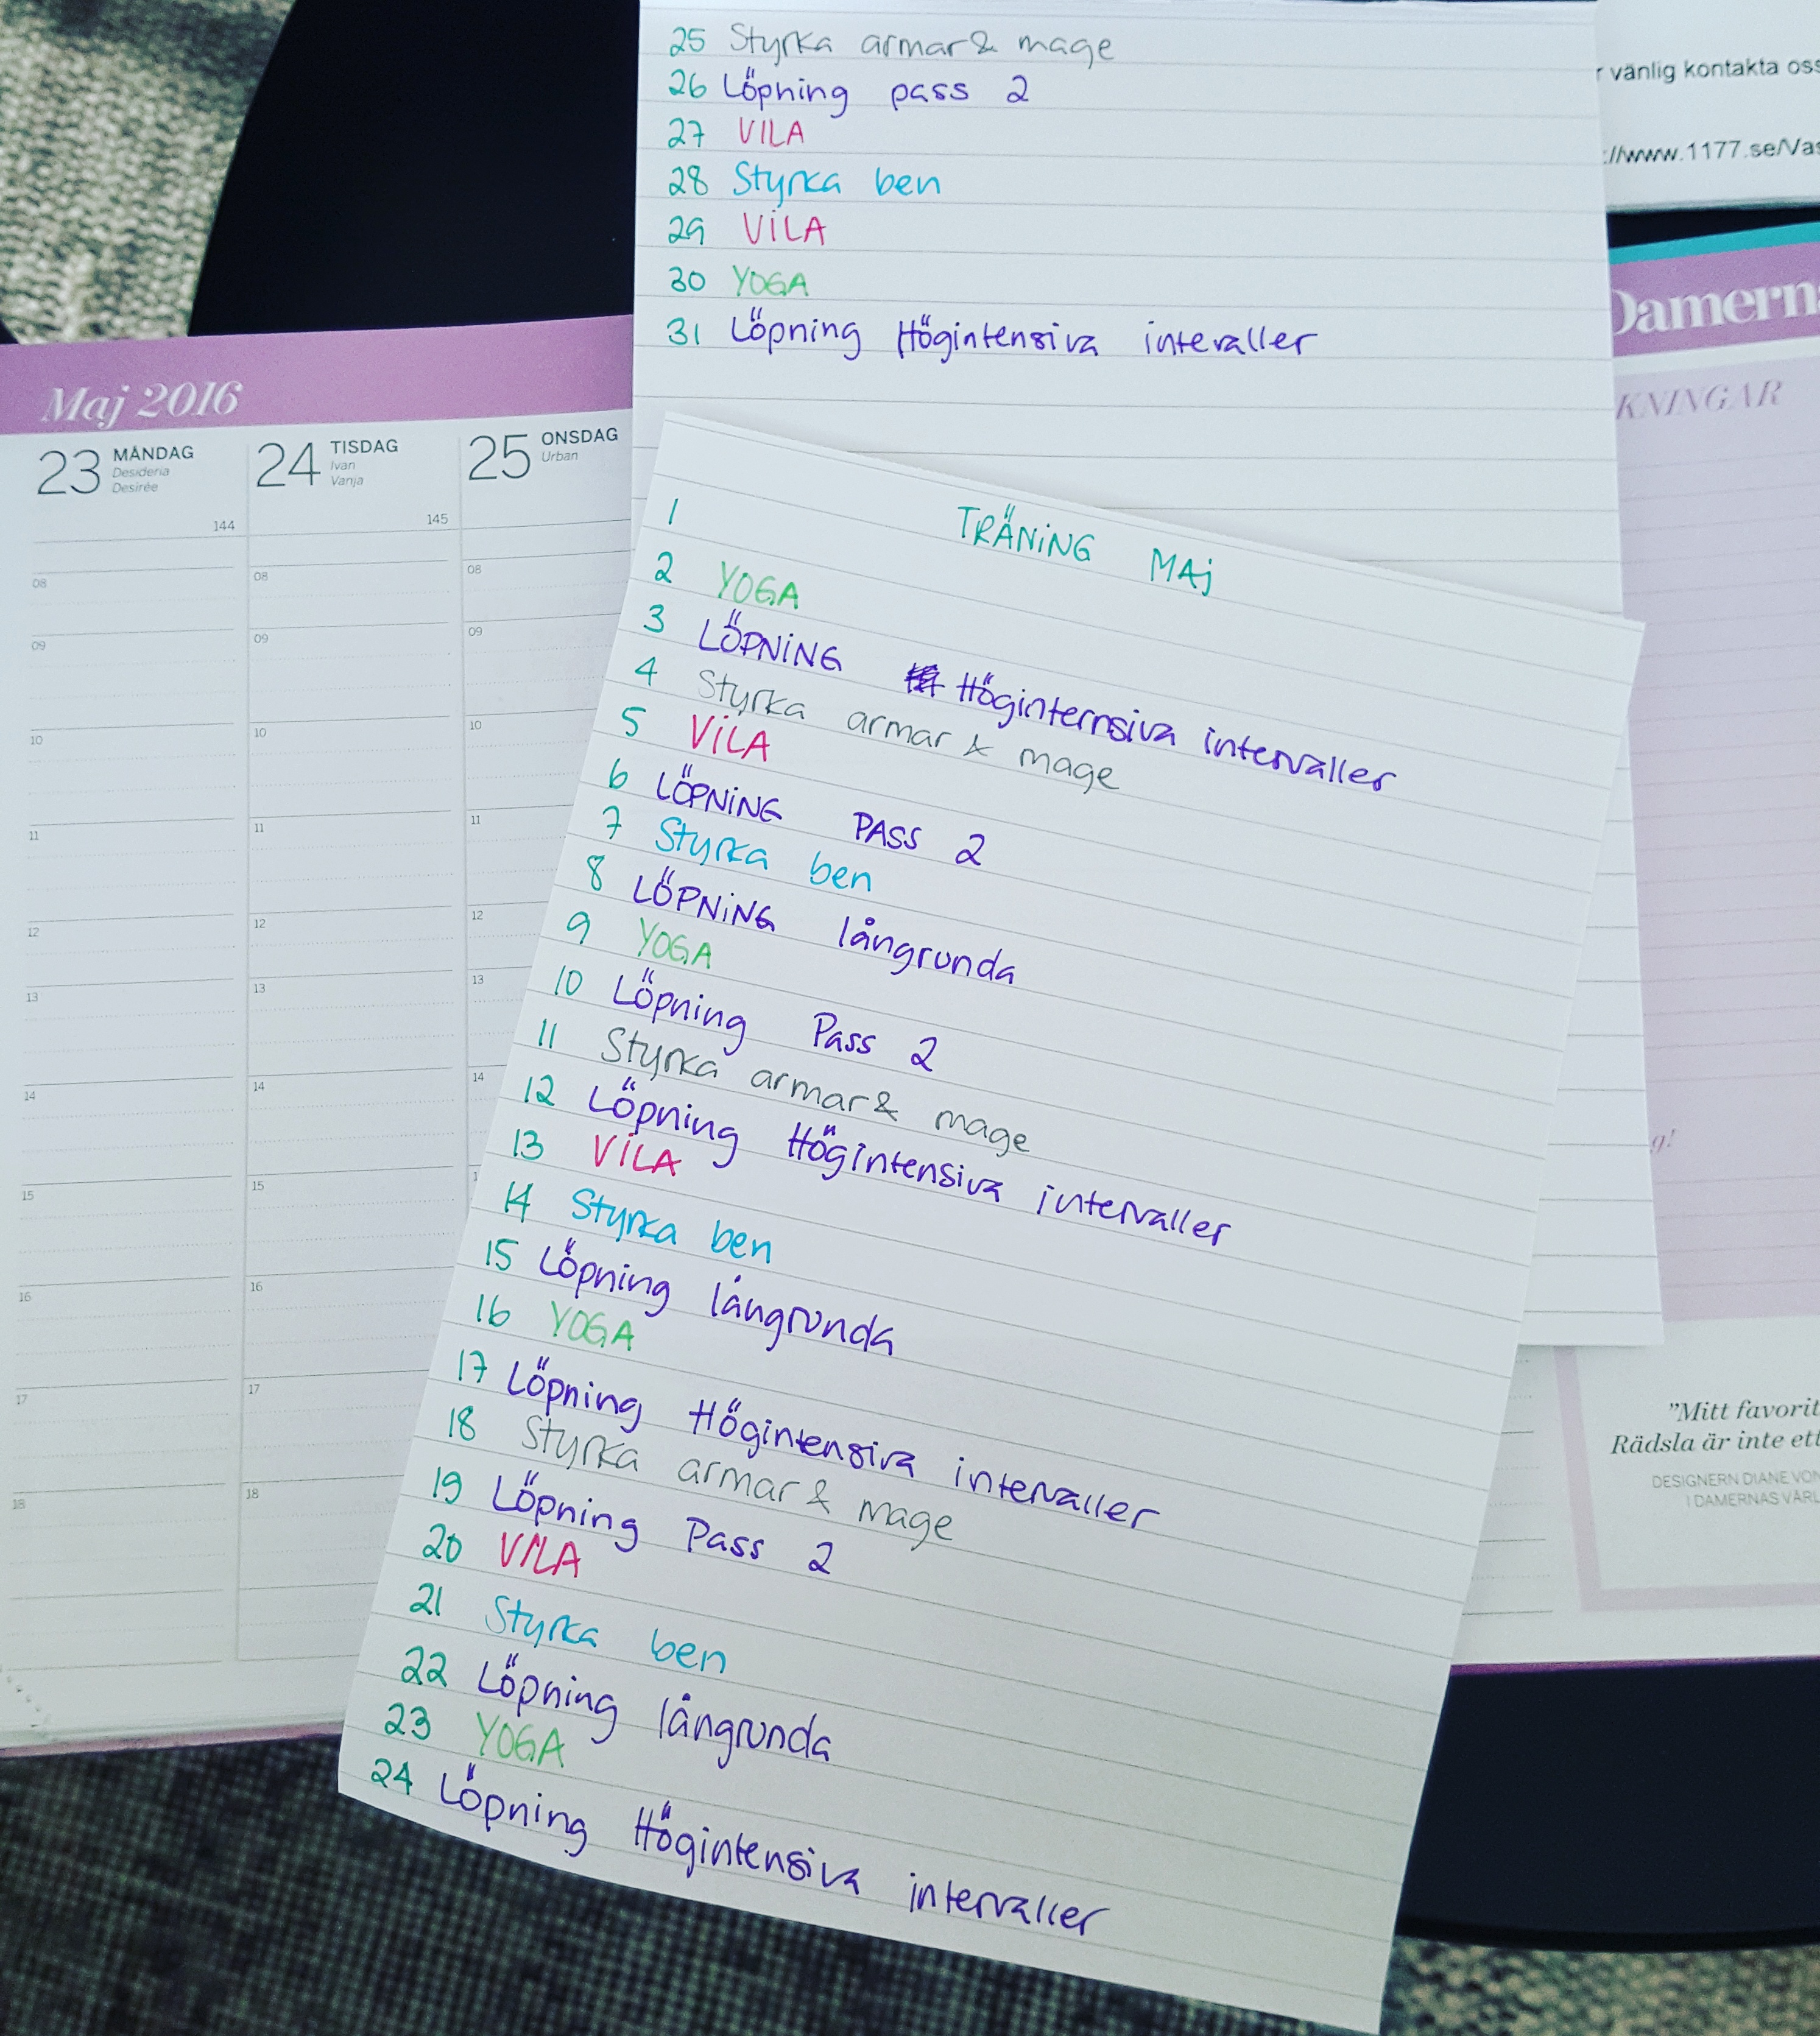 25 Styrka armar & mage
26 Löpning pass 2
27 VILA
28 Styrka ben
29 VILA
30 YOGA
31 Löpning Högintensiva intevaller
r vänlig kontakta oss
://www.1177.se/Vas
Damern
KNINGAR
g!
"Mitt favorit
Rädsla är inte ett
DESIGNERN DIANE VON
I DAMERNAS VÄRL
Maj 2016
23 MÅNDAG
Desideria
Desirée
144
08
09
10
11
12
13
14
15
16
17
18
24 TISDAG
Ivan
Vanja
145
08
09
10
11
12
13
14
15
16
17
18
25 ONSDAG
Urban
08
09
10
11
12
13
14
1
TRÄNING MAJ
1
2 YOGA
3 LÖPNING Höginternsiva intervaller
4 Styrka armar & mage
5 VILA
6 LÖPNING PASS 2
7 Styrka ben
8 LÖPNING långrunda
9 YOGA
10 Löpning Pass 2
11 Styrka armar & mage
12 Löpning Högintensiva intervaller
13 VILA
14 Styrka ben
15 Löpning långrunda
16 YOGA
17 Löpning Högintensiva intervaller
18 Styrka armar & mage
19 Löpning Pass 2
20 VILA
21 Styrka ben
22 Löpning långrunda
23 YOGA
24 Löpning Högintensiva intervaller